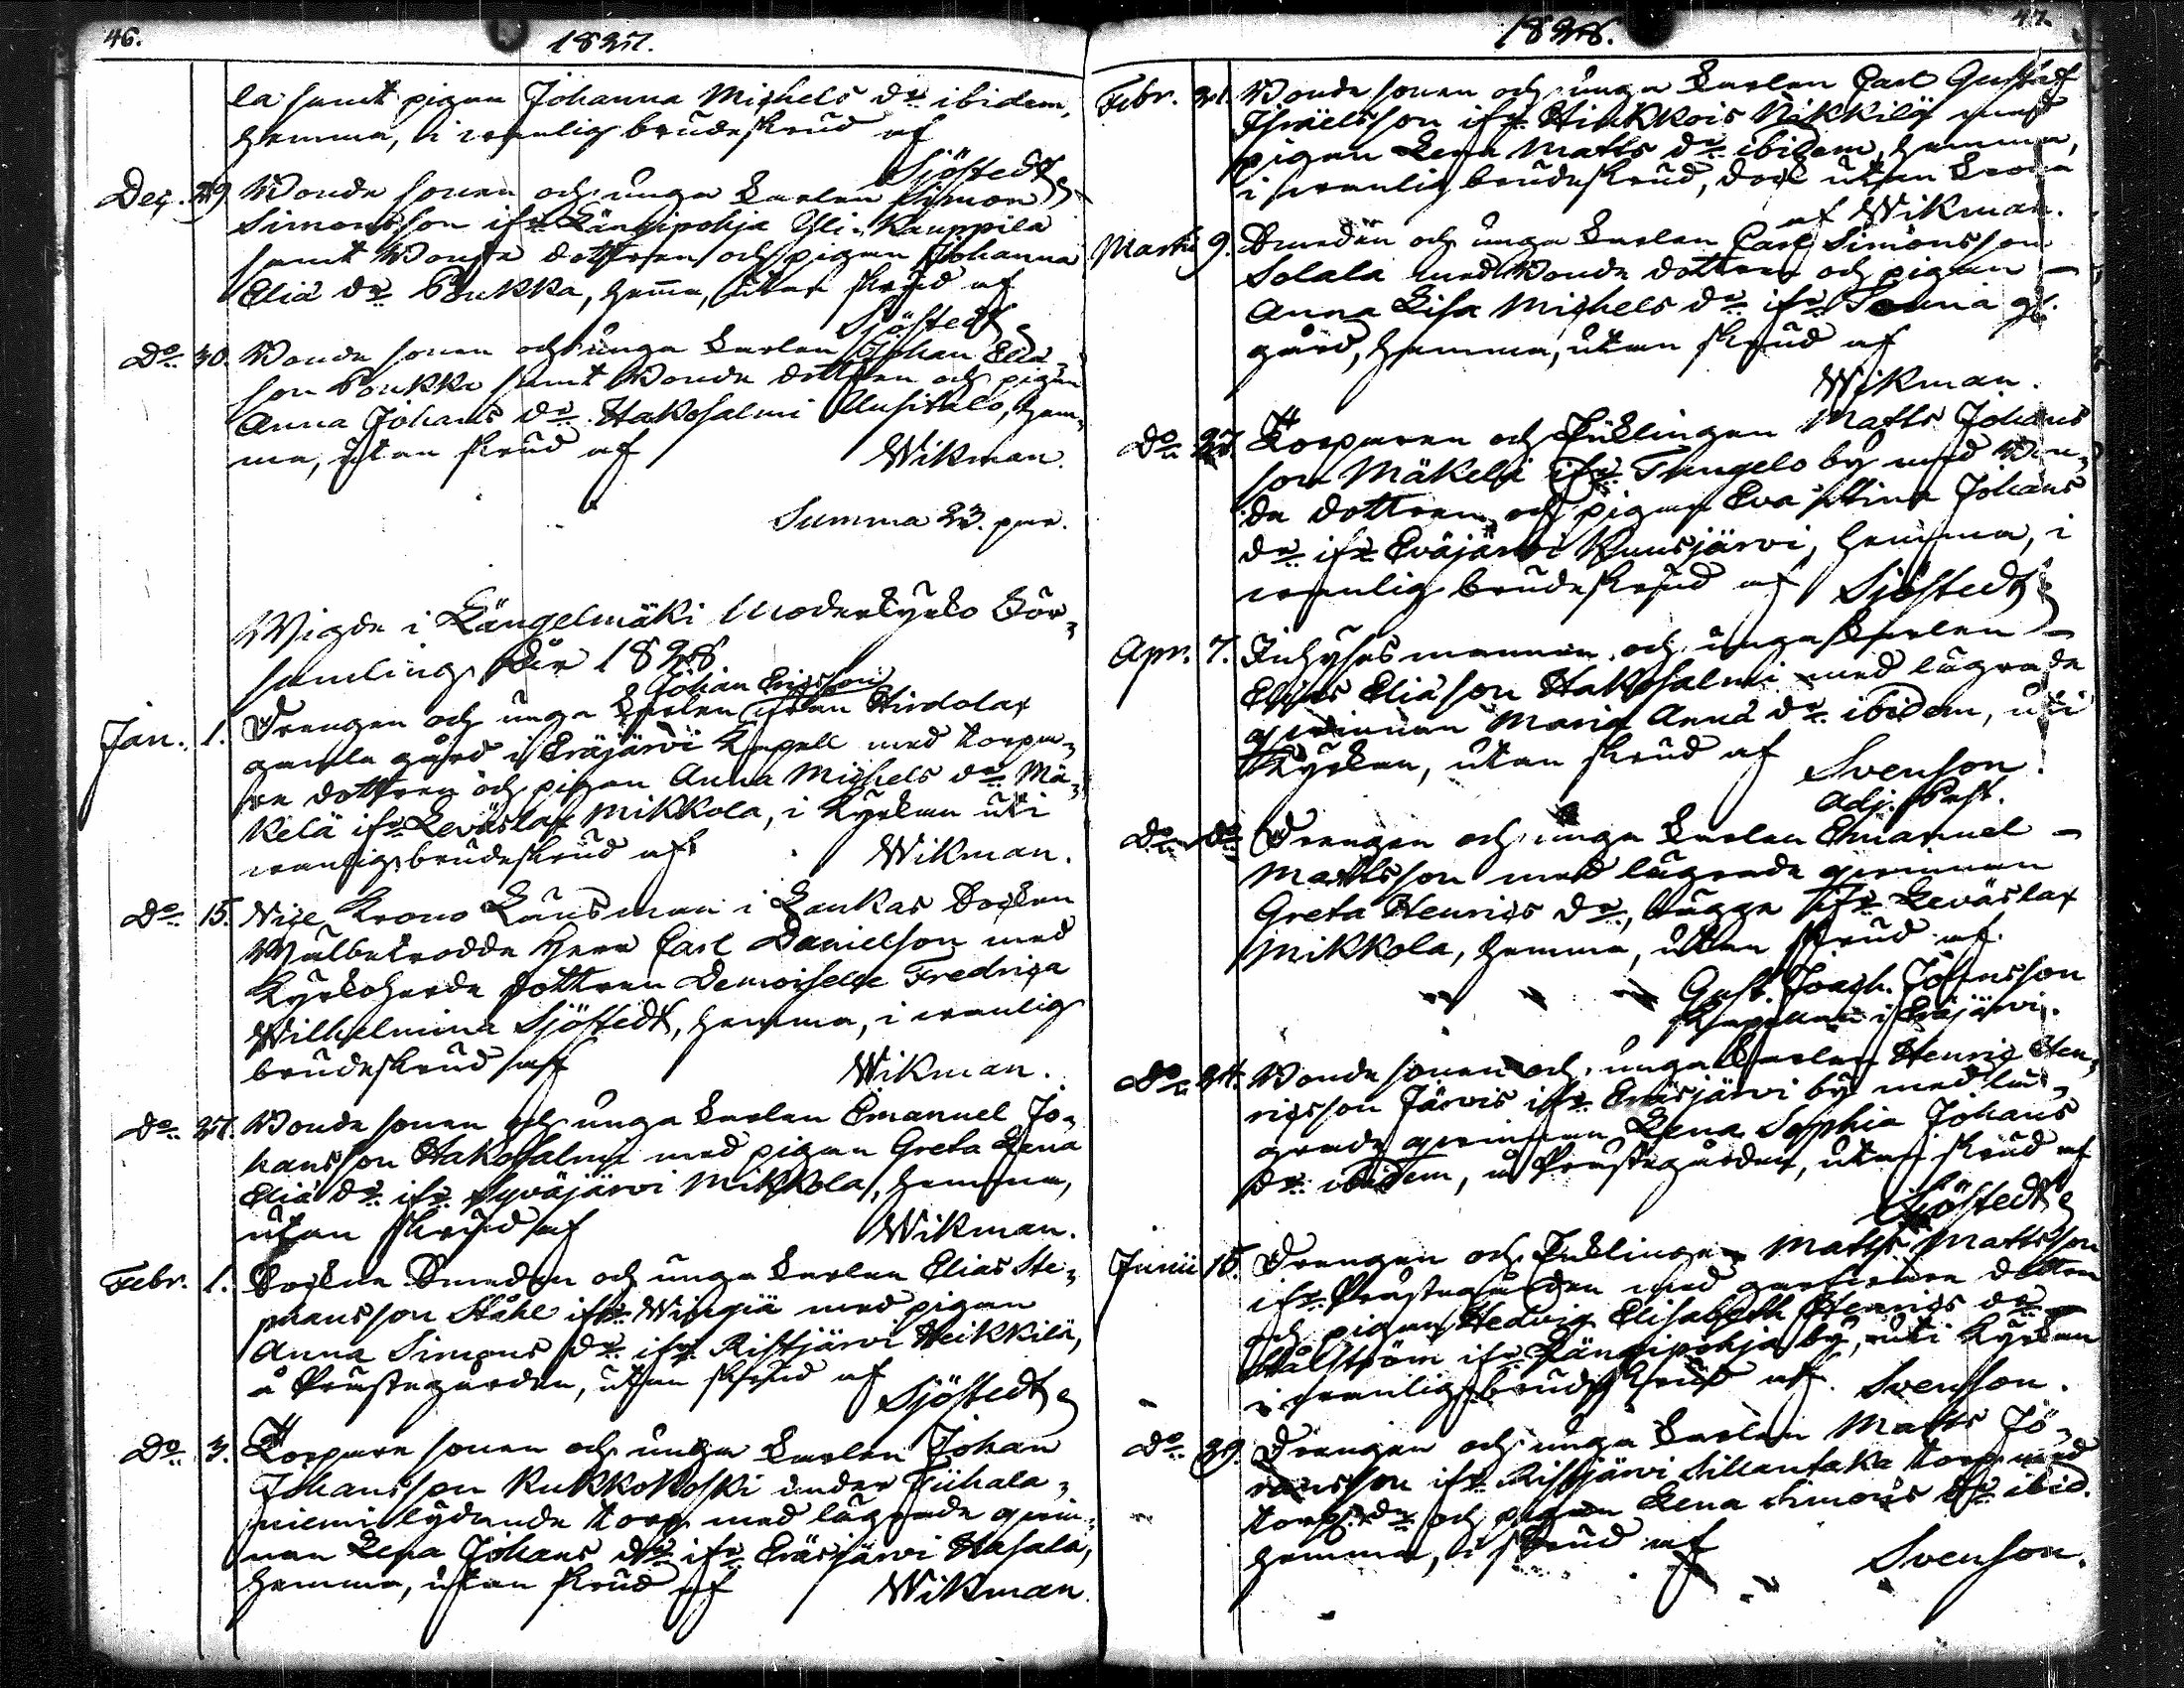 46.
1827.
la samt pigan Johanna Michels dr ibidem,
hemma, i wanlig brudeskrud af
Sjöstedt
Dec. 29. Bonde sonen och unga karlen Simon
Simonsson ifr Längipohja Yli-Kauppila
samt Bonde dottren och pigan Johanna
Eliä dr Poukka, hemma, utan skrud af
Sjöstedt
Do 30. Bonde sonen och unga karlen Johan Eliä-
son Poukka samt Bonde dottren och pigan
Anna Johans dr Hakosalmi Uusitalo, hem-
ma, utan skrud af Wikman.
Summa 23. par.
Wigde i Längelmäki Moderkyrko För-
samling År 1828
Johan Ericsson
Jan. 1. Drengen och unga karlen från Hirdolax
gamla gård i Eräjärvi Kapell med torpa-
re dottren och pigan Anna Michels dr Mä-
kelä ifr Leväslax Mikkola, i Kyrkan uti
wanlig brudeskrud af Wikman.
Do 15. Vice Krono Länsman i Laukas Socken
Wälbetrodde Herr Carl Danielson med
Kyrkoherde dottren Demoiselle Fredrica
Wilhelmina Sjöstedt, hemma, i wanlig
brudeskrud af Wikman.
Do 27. Bonde sonen och unga karlen Emanuel Jo-
hansson Hakosalmi med pigan Greta Lena
Eliä dr ifr Syväjärvi Mikkola, hemma,
utan skrud af Wikman.
Febr. 1. Sockne Smeden och unga karlen Elias Ste-
phansson Ståhl ifr Wingiä med pigan
Anna Simons dr ifr Ristjärvi Heikkilä,
å Prästegården, utan skrud af Sjöstedt
Do 3. Torpare sonen och unga karlen Johan
Johansson Kukkokoski under Tiihala-
niemi lydande torp med lägrade qwin-
nan Lena Johans dr ifr Eräsjärvi Hasala,
hemma, utan skrud af Wikman.
1828.
47.
Febr. 21. Bonde sonen och unga karlen Carl Gustaf
Israelsson ifr Hinkkois Nikkilä med
pigan Lena Matts dr ibidem, hemma,
i wanlig brudeskrud, dock utan krona
af Wikman.
Martii 9. Smeden och unga karlen Carl Simonsson
Solala med Bonde dottren och pigan
Anna Lisa Michels dr ifr Tounia
gård, hemma, utan skrud af
Wikman.
Do 27. Torparen och Enklingen Matts Johans
son Mäkelä ifr Tungelo by med Bon-
de dottren och pigan Eva Stina Johans
dr ifr Eväjärvi Kuusjärvi, hemma, i
wanlig brudeskrud af Sjöstedt
Apr. 7. Inhysesmannen och unga karlen
Elias Eliäson Hakosalmi med lägrade
qwinnan Maria Anna dr ibidem, uti
Kyrkan, utan skrud af Svenson.
Adj. Past.
Do Do Drengen och unga karlen Emanuel
Mattsson med lägrade qwinnan
Greta Henrics dr, bägge ifr Leväslax
Mikkola, hemma, utan skrud af
Gust. Joach. Johnsson
Kapellan i Eräjärvi.
Do 24. Bonde sonen och unga karlen Henric Hen-
ricsson Järvis ifr Eräsjärvi by med lä-
grade qwinnan Lena Sophia Johans
dr ibidem, å Prästegården, utan skrud af
Sjöstedt
Junii 15. Drengen och Enklingen Matts Mattsson
ifr Prästegården med dottren
och pigan Hedvig Elisabeth Henrics dr
ifr Längipohja by, uti Kyrkan
i wanlig brudeskrud af Svenson.
Do 29. Drengen och unga karlen Matts Jö-
ransson ifr Ristjärvi Sillantaka torp med
torp. dr och pigan Lena Simons dr ibid.
hemma, i skrud af
Svenson.